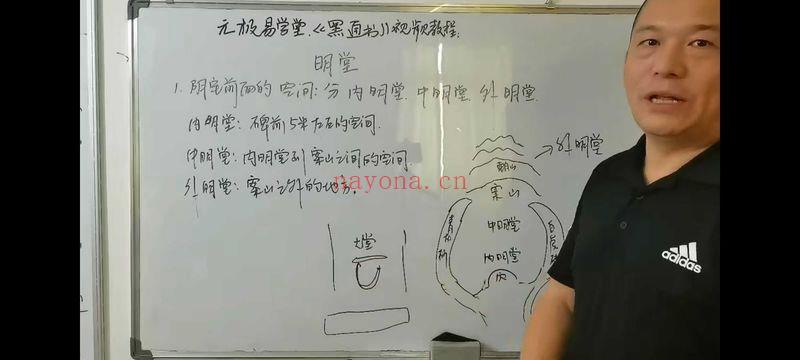 元极易学堂《黑通书》视频教程
明堂
1. 阴宅前面的空间:分内明堂.中明堂.外明堂.
内明堂:碑前5米左右的空间.
中明堂:内明堂到案山之间的空间.
外明堂:案山之外的地方.
nayona.cn
朝山
外明堂
案山
中明堂
内明堂
穴
青龙砂
白虎砂
土堂
adidas